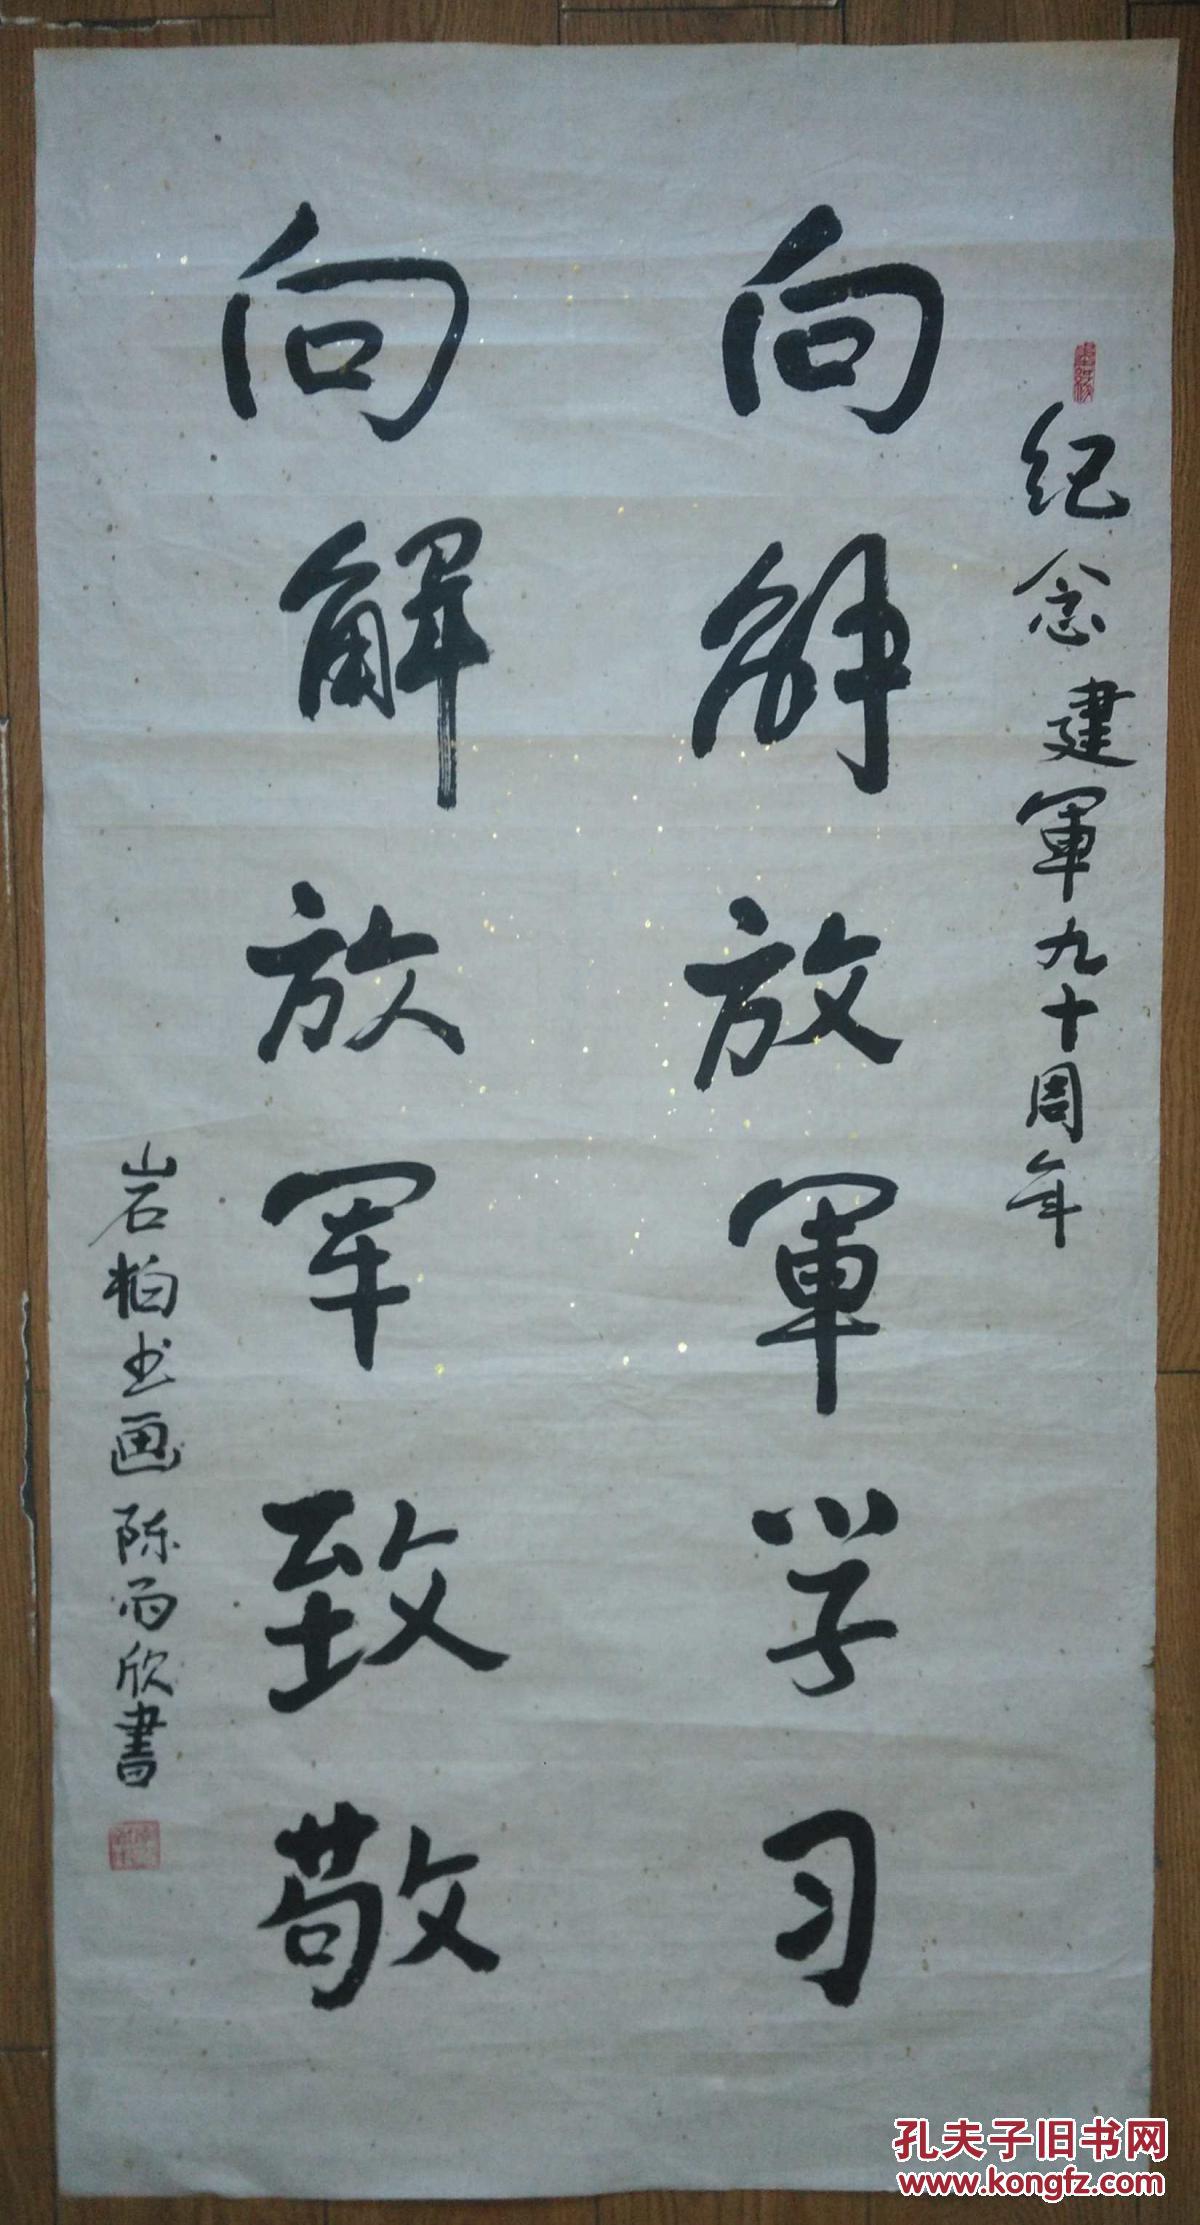 纪念建軍九十周年
向解放軍学习
向解放军致敬
岩柏书画陈雨欣書
孔夫子旧书网
www.kongfz.com